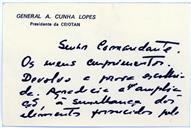 GENERAL A. CUNHA LOPES
Presidente da CEIOTAN
Senhor Comandante.
Os meus cumprimentos.
Devolvo a prova
Agradecia
à semelhança dos
elementos fornecidos pelo